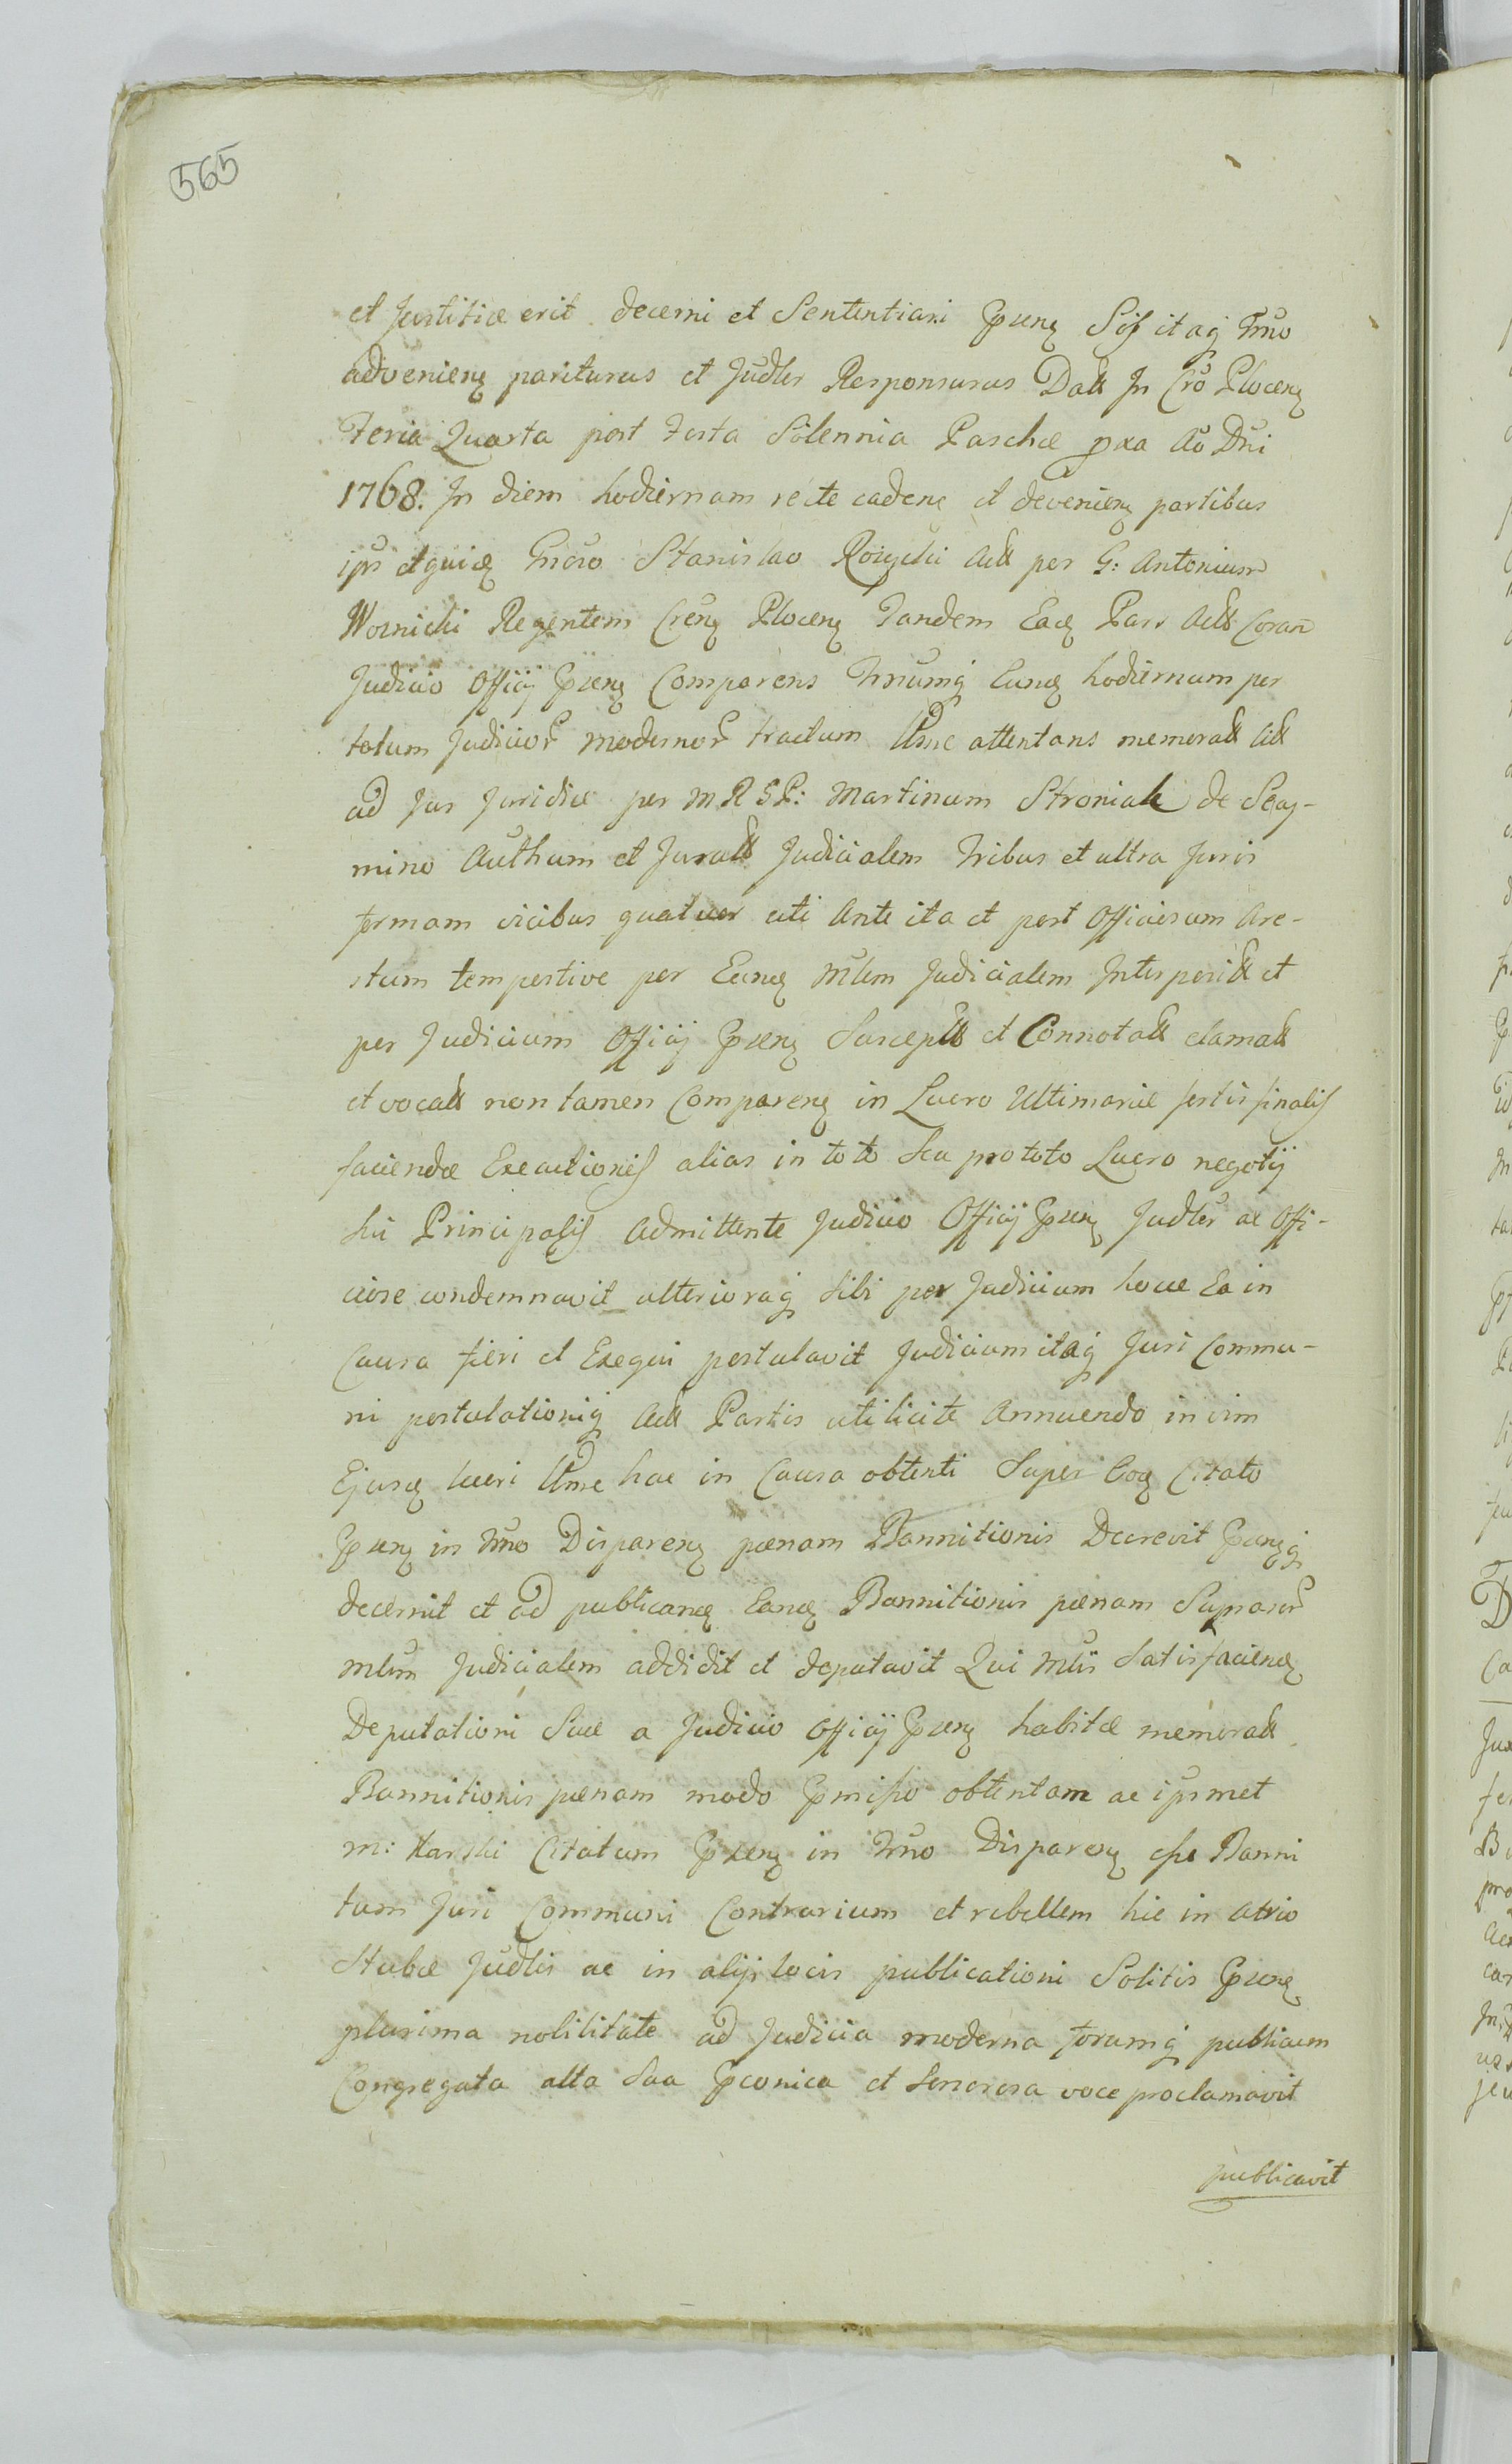 565
et Justitiæ erit decerni et Sententiari Præns Sis itaq Trmo
adveniens pariturus et Judlr Responsurus Datt In Cro Plocens
Feria Quarta post Festa Solennia Paschæ pxa Ao Dni
1768. In diem hodiernam recte cadens et deveniens partibus
ipis Gnoso Stanislao Act per G: Antonium
Wornicki Regentem Crens Plocens Tandem Eaq Pars Act Coram
Judicio Officij Præns Comparens Trnumq Eunq hodiernum per
totum Judicior modernor tractum Ulme attentans memoratt Citt
ad Jus Juridice per M R S P: Martinum Stroniak de Seay-
mino Authum et Juratt Judicialem Tribus et ultra Juris
formam vicibus quatuor uti Ante ita et post Officiosum Are-
stum tempestive per Eunq Mlem Judicialem et
per Judicium Officij Præns Suscept et Connotatt clamatt
et vocatt non tamen Comparens in Lucro Ultimariæ
faciendæ Exeactionis alias in toto Seu pro toto Lucro negotij
Sui Principalis Admittente Judicio Officij Præns Judlr ac Offi-
ciose condemnavit ulterioraq Sibi per Judicium hocce Ea in
Causa fieri et Exequi postulavit Judicium itaq Juri Commu-
ni postulationiq Act Partis uti licite Annuendo in vim
Ejusq lucri Ulme hac in Causa obtenti Super Eoq Citato
Præns in Trno Disparens pænam Bannitionis Decrevit Prænsq
decernit et ad publicanq Eanq Bannitionis pænam Suprascr
Mlem Judicialem addidit et deputavit Qui Mlis Satisfacienq
Deputationi Suæ a Judicio Officij Præns habitæ memoratt
Bannitionis pænam modo Præmisso obtentam ac ipsmet
M: Karski Citatum Præns in Trno Disparens esse Banni
tum Juri Communi Contrarium et rebellem hic in atrio
Stubæ Judlis ac in alijs locis publicationi Solitis Prænq
plurima nobilitate ad Judicia moderna forumq publicum
Congregata alta Sua Præconica et Sonorosa voce proclamavit
publicavit